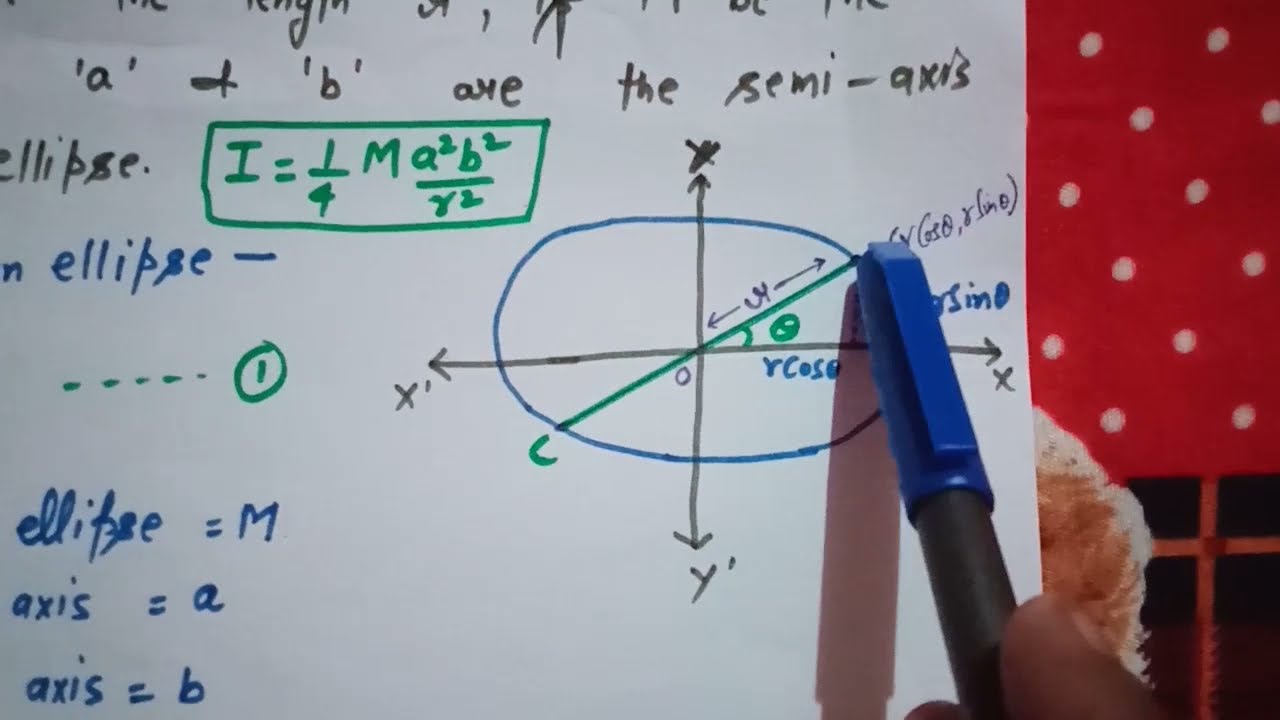 the length r, if M be the
'a' & 'b' are the semi-axis
ellipse. I = 1/4 M a²b²/r²
n ellipse —
----- ①
ellipse = M
axis = a
axis = b
Y
(rcosθ, rsinθ)
r
θ
rsinθ
X'
O
rcosθ
X
C
Y'